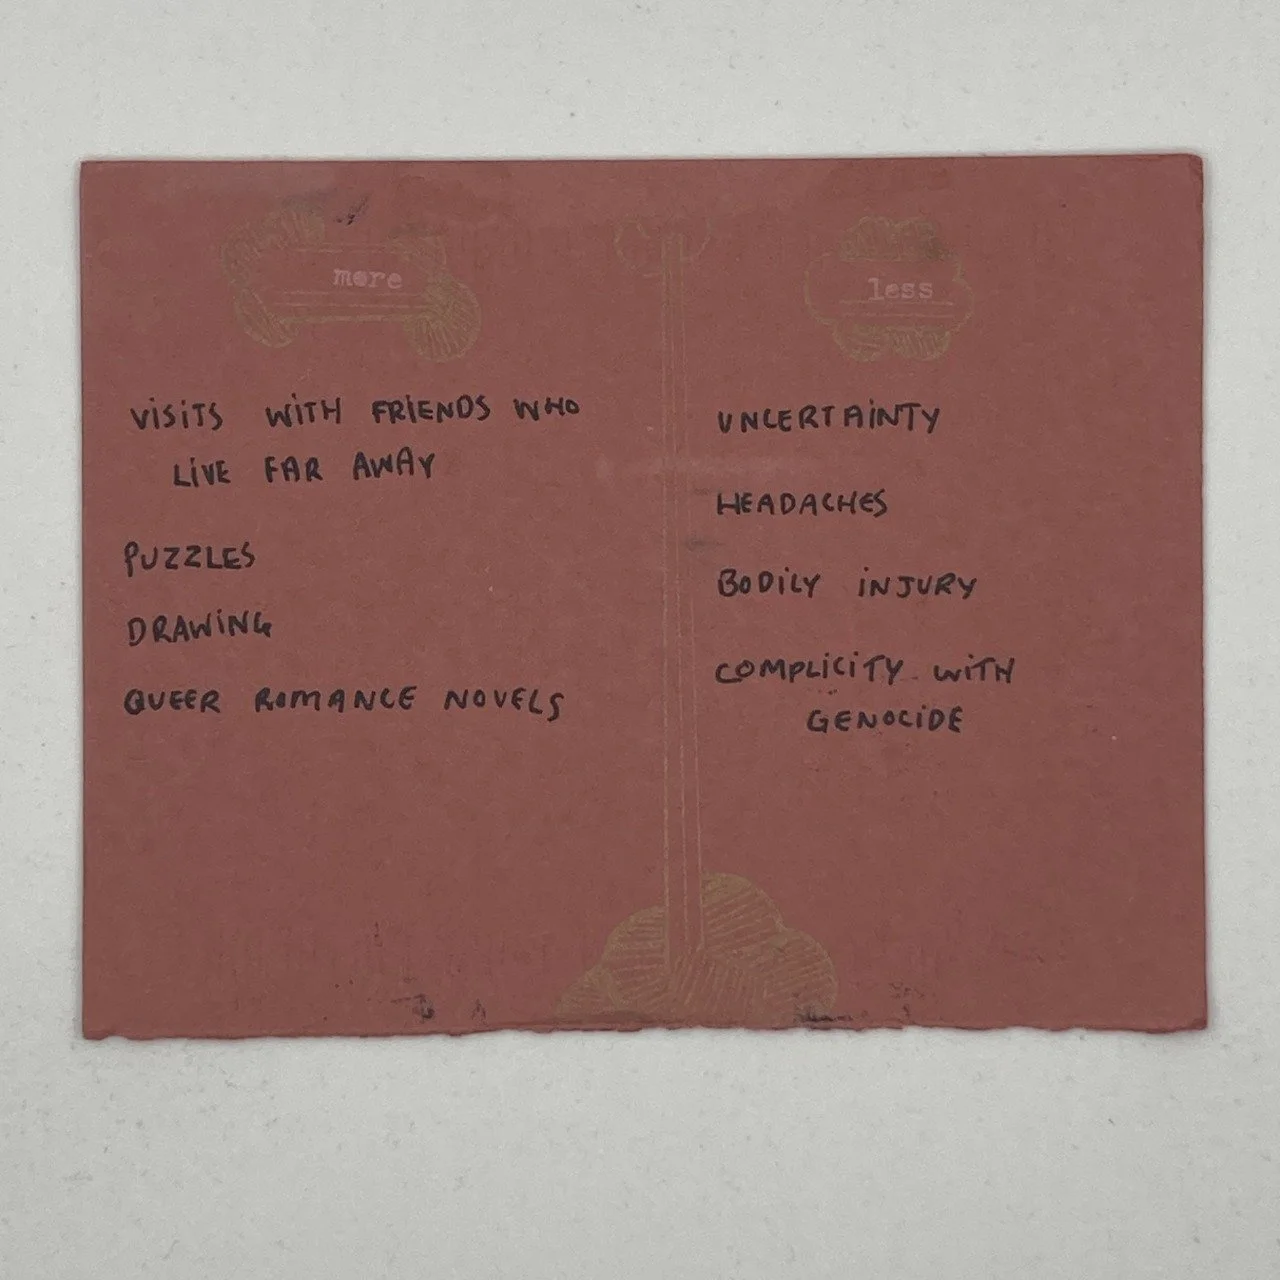 more
VISITS WITH FRIENDS WHO
LIVE FAR AWAY
PUZZLES
DRAWING
QUEER ROMANCE NOVELS
less
UNCERTAINTY
HEADACHES
BODILY INJURY
COMPLICITY WITH
GENOCIDE